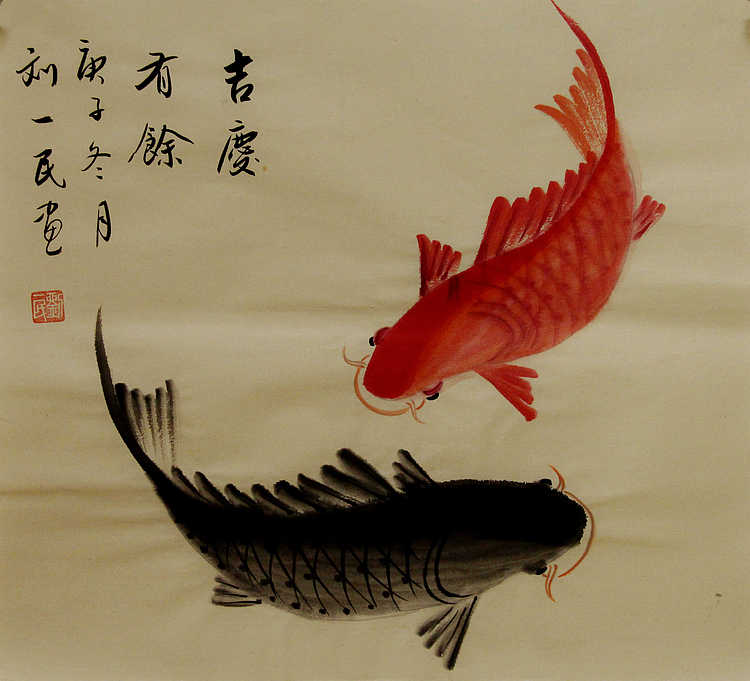 吉慶
有餘
庚子冬月
刘一民画
劉一民